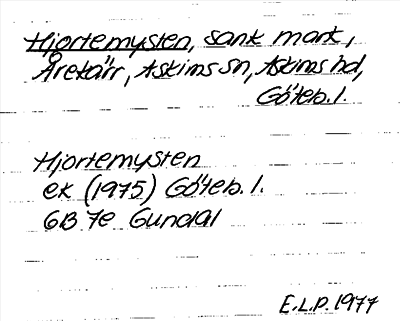 Hjortemysten, sank mark,
Årekärr, Askims sn, Askims hd,
Göteb. l.
Hjortemysten
ek (1975) Göteb. l.
6B 7e Gundal
E.L.P. 1977